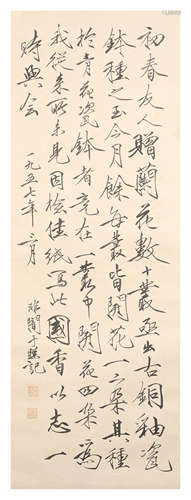 初春友人贈蘭花數十叢亟出古銅釉瓷
鉢種之至今月餘每叢皆開花一二朵其種
於青花瓷鉢者竟在一叢中開花四朵為
我從來所未見因檢佳紙寫此國香以志一
時興會 一九五七年二月 非闇于照記